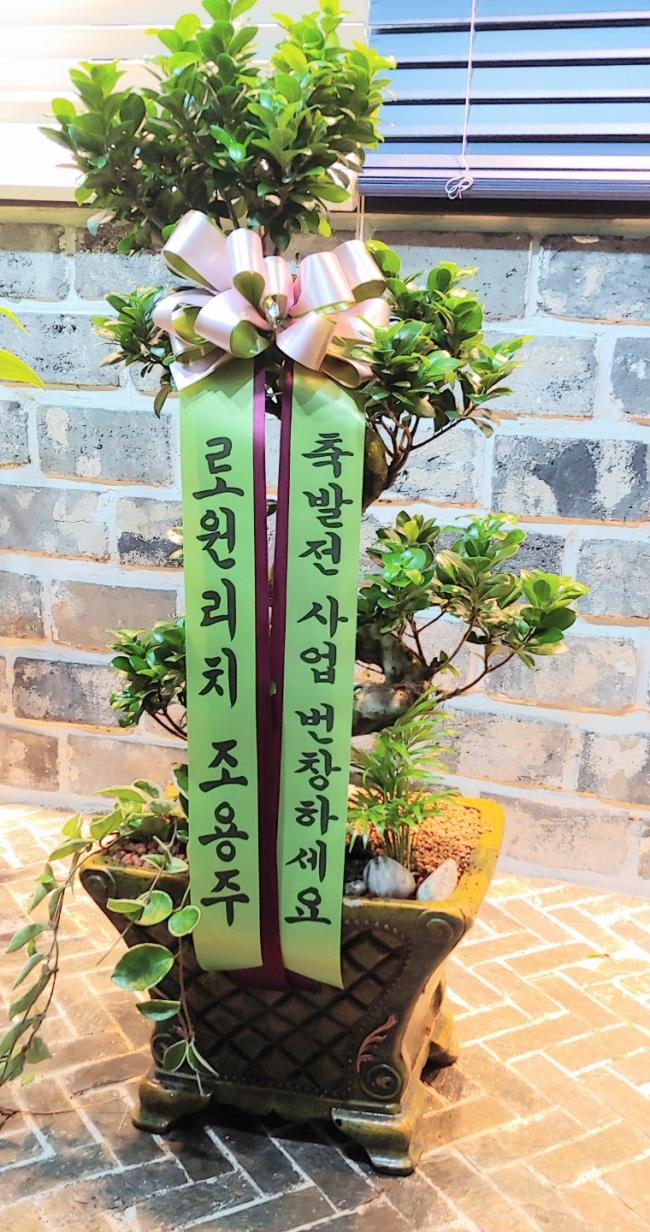 축발전 사업 번창하세요
로원리치 조용주